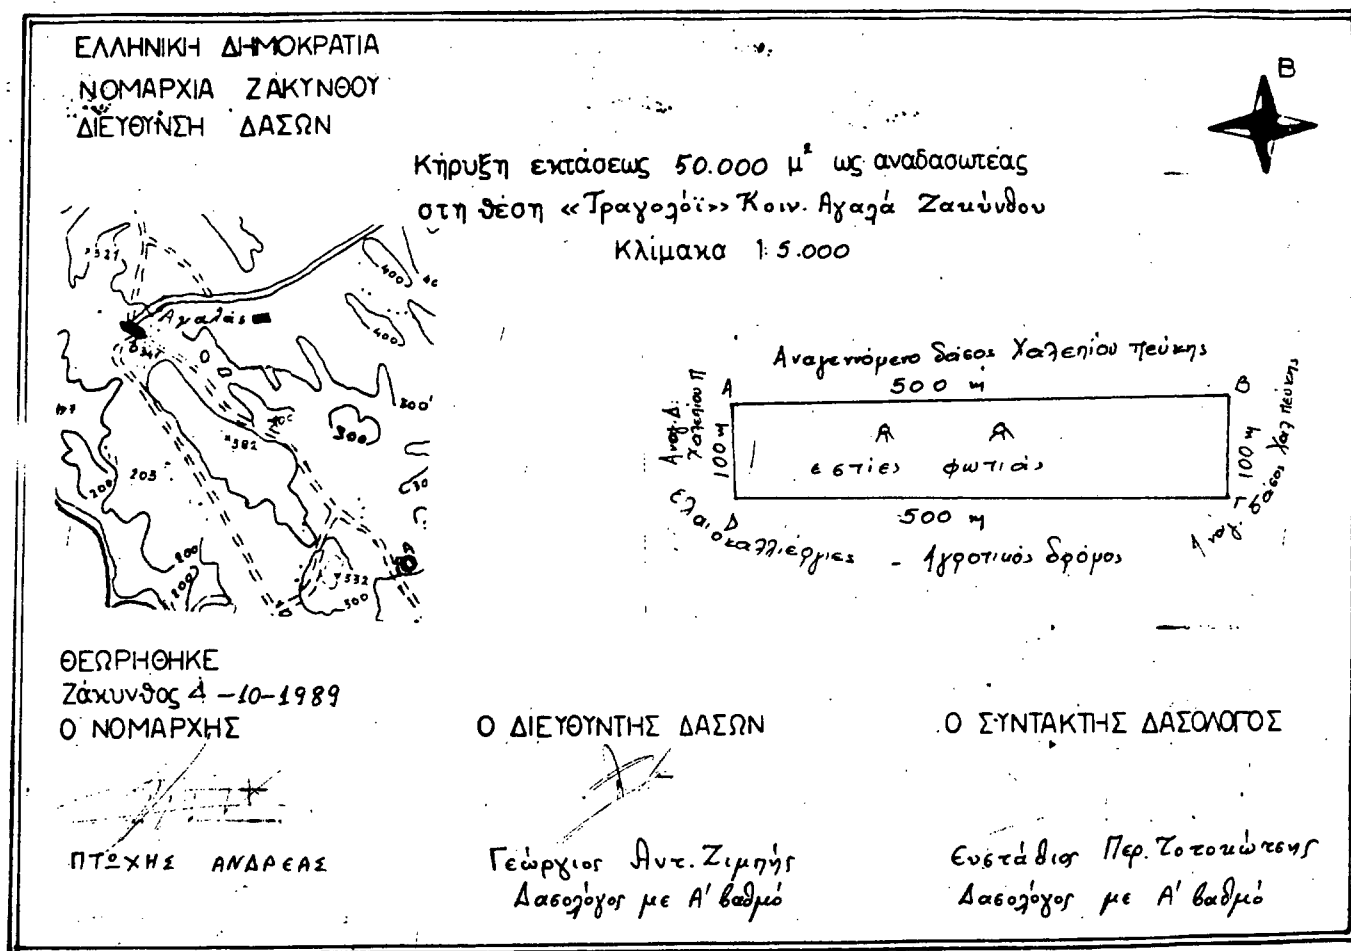 ΕΛΛΗΝΙΚΗ ΔΗΜΟΚΡΑΤΙΑ
ΝΟΜΑΡΧΙΑ ΖΑΚΥΝΘΟΥ
ΔΙΕΥΘΥΝΣΗ ΔΑΣΩΝ
Β
Κήρυξη εκτάσεως 50.000 μ² ως αναδασωτέας
στη θέση «Τραγολόϊ» Κοιν. Αγαλά Ζακύνθου
Κλίμακα 1:5.000
321
400
400
Αγαλάς
347
300
300
382
203
200
200
200
332
300
Αναγεννόμενο δάσος Χαλεπίου πεύκης
Α 500 μ Β
Αναγ. Δ.
Χαλεπίου Π
100 μ
εστίες φωτιάς
100 μ
Αναγ. δάσος Χαλ πεύκης
Δ 500 μ Γ
Ελαιοκαλλιέργιες - Αγροτικός δρόμος
ΘΕΩΡΗΘΗΚΕ
Ζάκυνθος 4-10-1989
Ο ΝΟΜΑΡΧΗΣ
ΠΤΩΧΗΣ ΑΝΔΡΕΑΣ
Ο ΔΙΕΥΘΥΝΤΗΣ ΔΑΣΩΝ
Γεώργιος Αντ. Ζιμπής
Δασολόγος με Α' βαθμό
Ο ΣΥΝΤΑΚΤΗΣ ΔΑΣΟΛΟΓΟΣ
Ευστάθιος Περ. Τοτομώτσης
Δασολόγος με Α' βαθμό